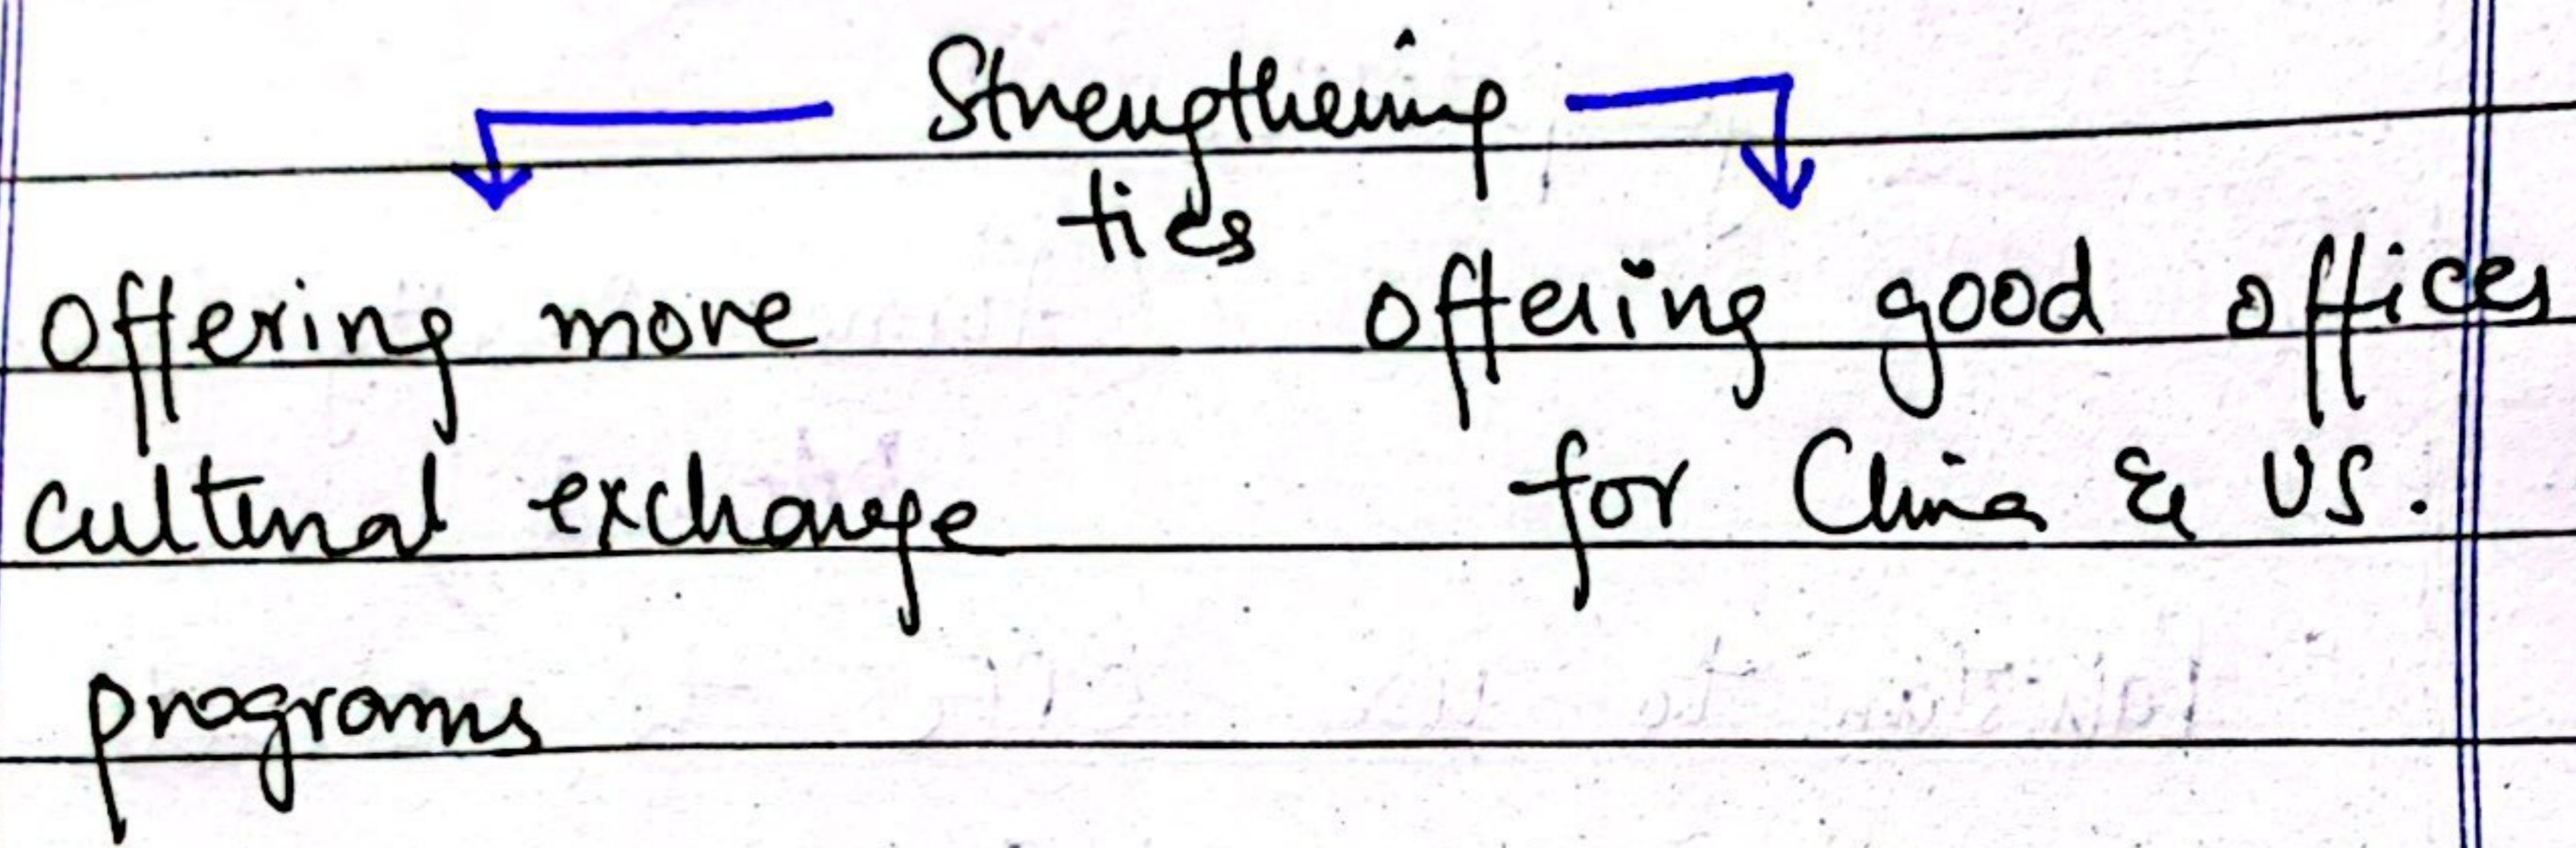 Strengthening
ties
Offering more
cultural exchange
programs
offering good offices
for China & US.